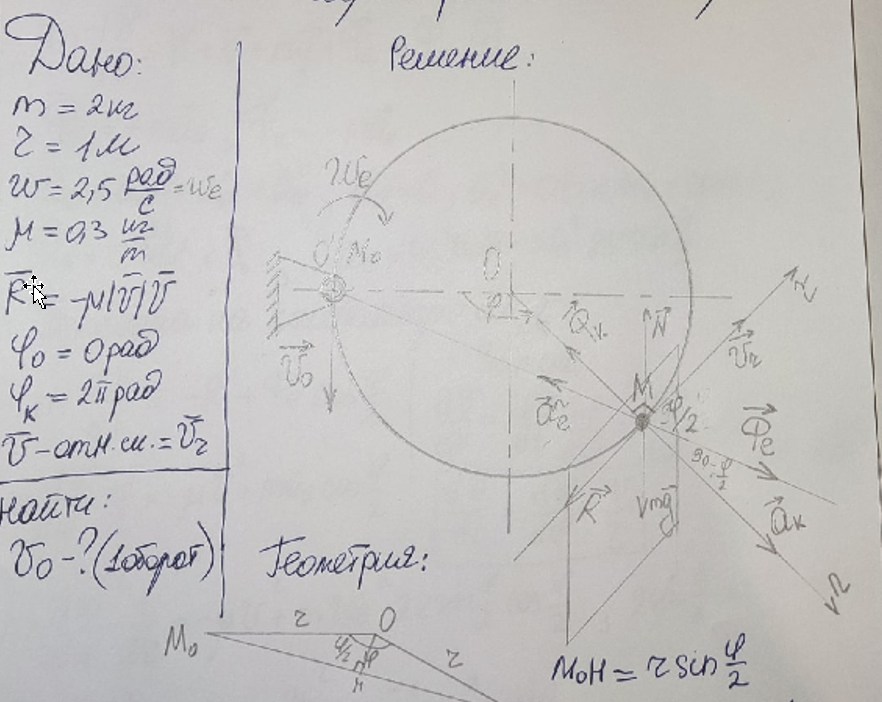 Дано:
m = 2кг
r = 1м
w = 2,5 рад/с = We
μ = 0,3 кг/м
R̅ = -μ|v̅|v̅
φ₀ = 0 рад
φк = 2π рад
v̅ - отн. ск. = v̅r
Найти:
v₀ - ? (1 оборот)
Решение:
We
O' M₀
O
φ
v̅₀
Φ⃗к
N̅
τ
v̅r
M
φ/2
a⃗r
Φ⃗e
90-φ/2
R⃗
mg⃗
a⃗к
n
Геометрия:
M₀
r
O
φ/2
φ
r
H
M₀H = r sin φ/2